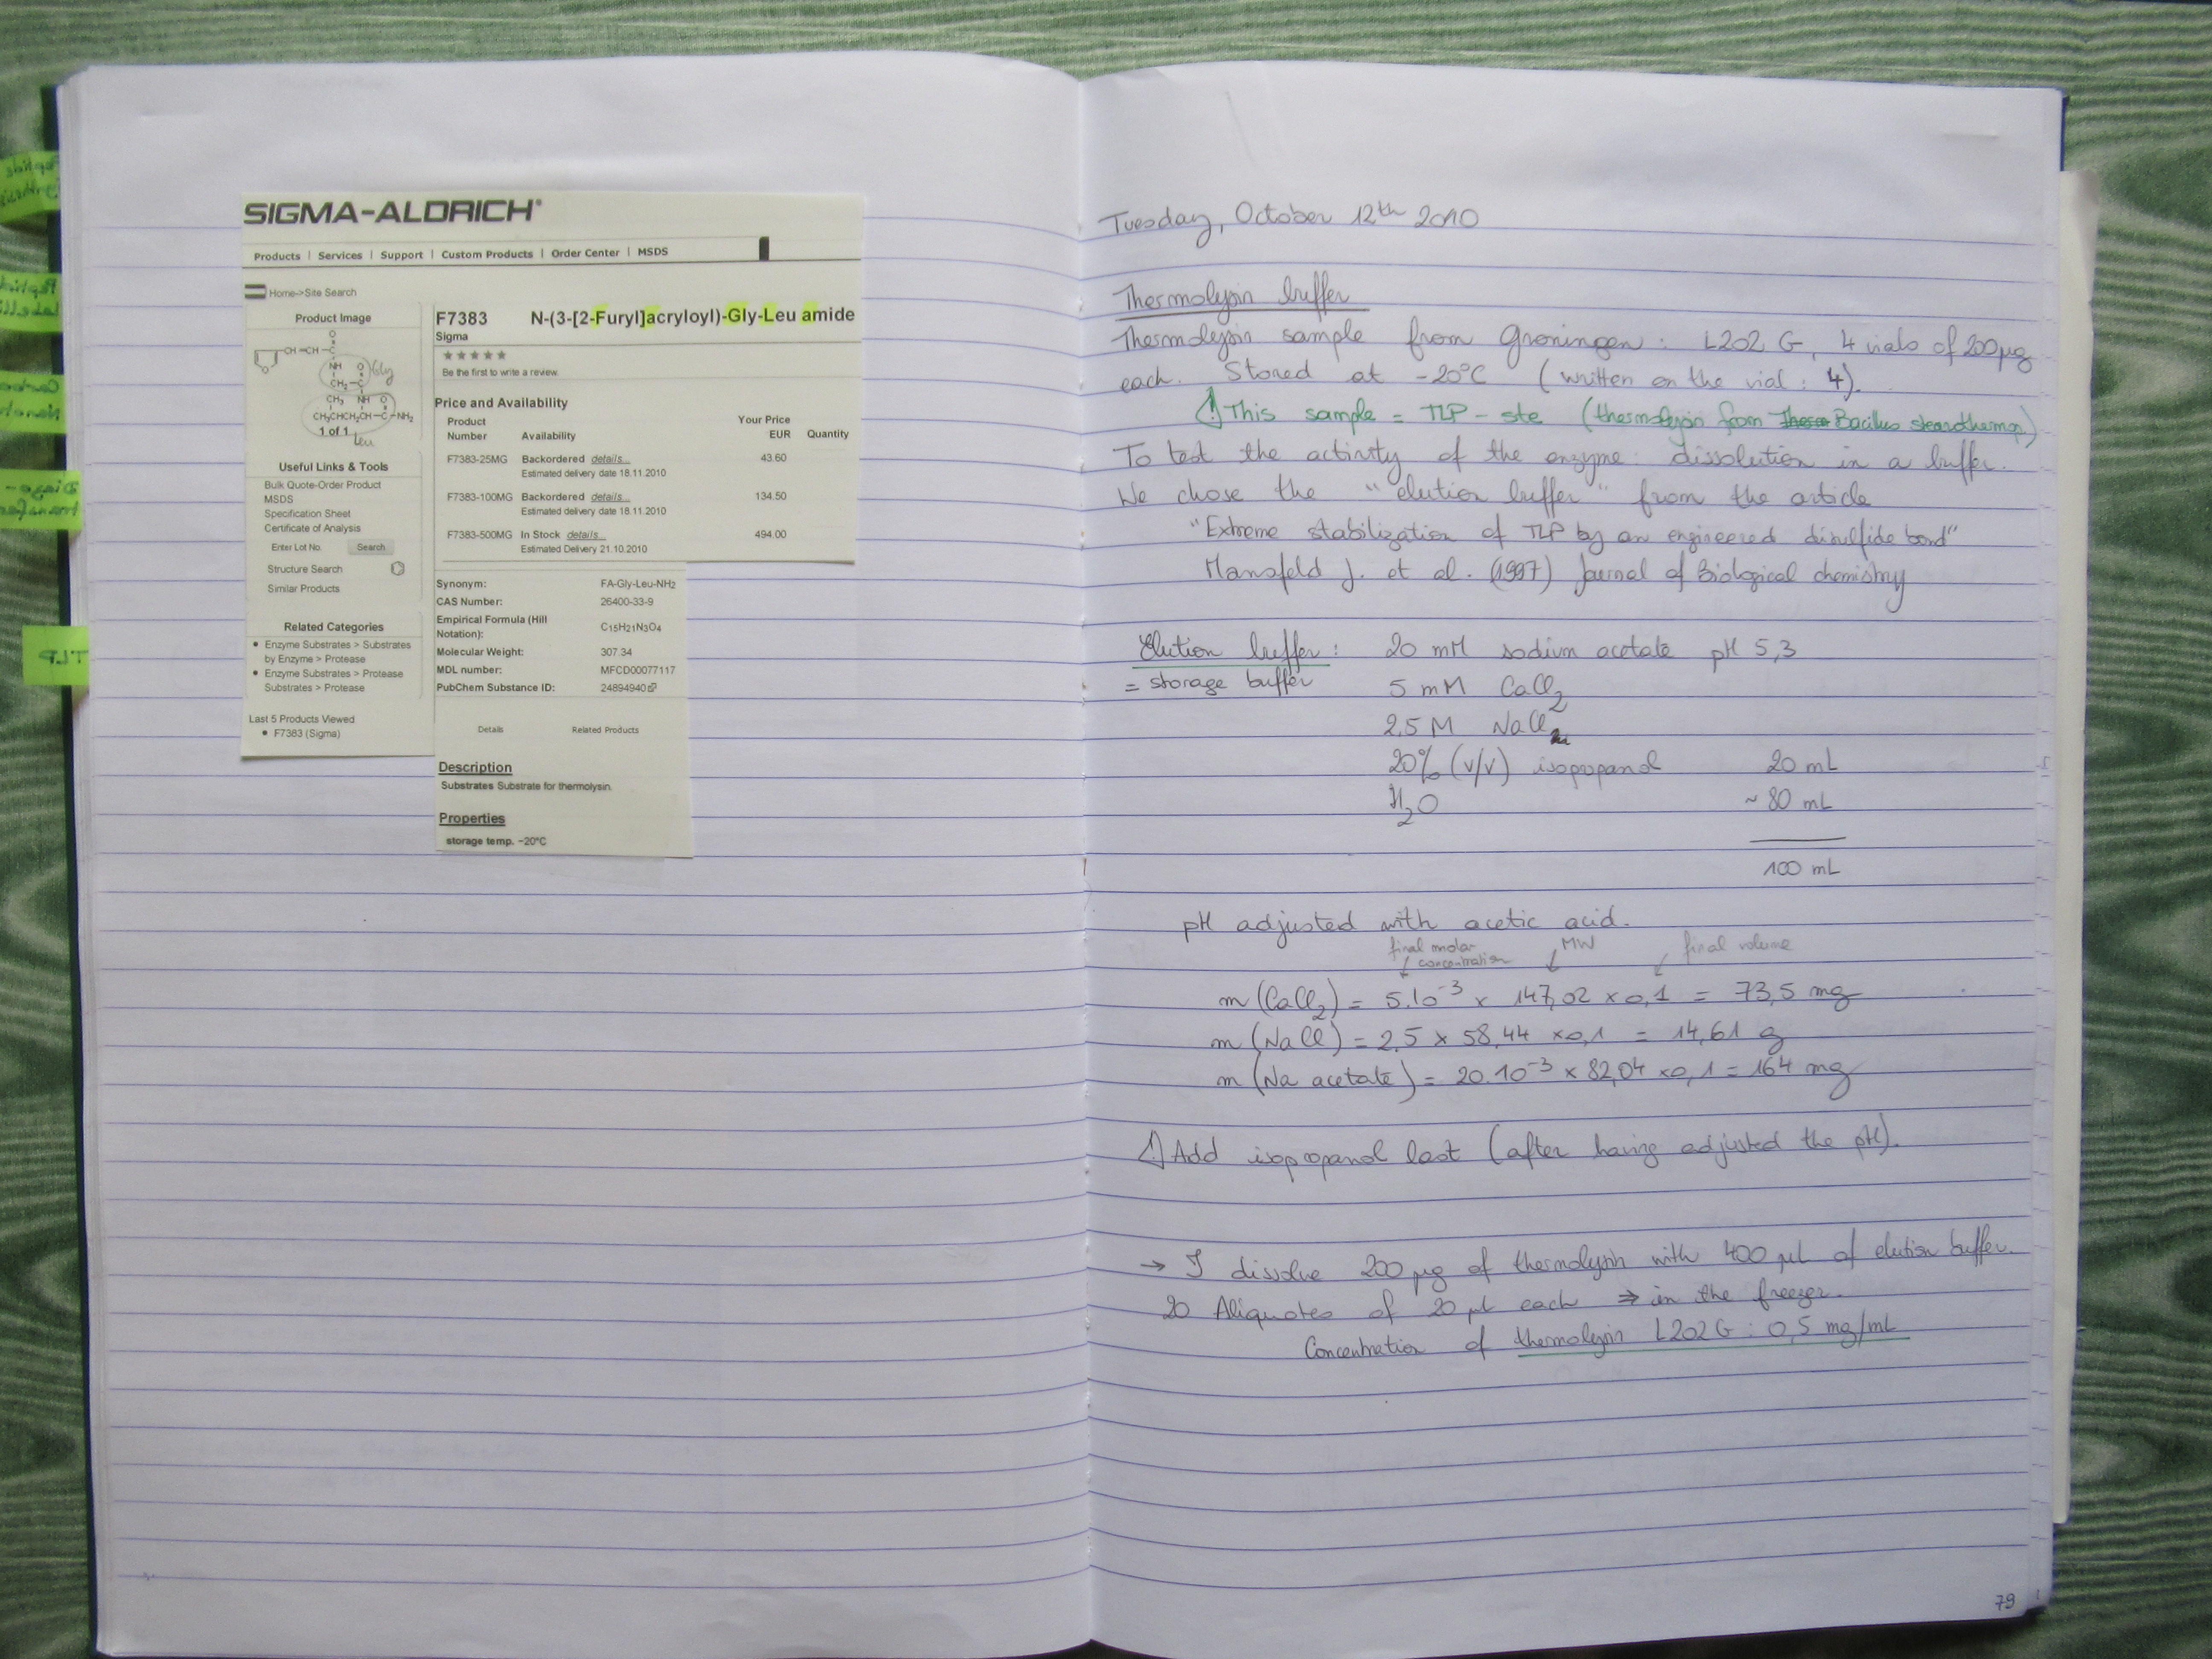 SIGMA-ALDRICH®
Products | Services | Support | Custom Products | Order Center | MSDS
Home->Site Search
Product Image
O
CH=CH-C
O
NH O Gly
CH2-C
CH3 NH O
CH3CHCH2CH-C-NH2
1 of 1
Leu
Useful Links & Tools
Bulk Quote-Order Product
MSDS
Specification Sheet
Certificate of Analysis
Enter Lot No. Search
Structure Search
Similar Products
Related Categories
• Enzyme Substrates > Substrates
by Enzyme > Protease
• Enzyme Substrates > Protease
Substrates > Protease
Last 5 Products Viewed
• F7383 (Sigma)
F7383 N-(3-[2-Furyl]acryloyl)-Gly-Leu amide
Sigma
★★★★★
Be the first to write a review.
Price and Availability
Product Number Availability Your Price EUR Quantity
F7383-25MG Backordered details... 43.60
Estimated delivery date 18.11.2010
F7383-100MG Backordered details... 134.50
Estimated delivery date 18.11.2010
F7383-500MG In Stock details... 494.00
Estimated Delivery 21.10.2010
Synonym: FA-Gly-Leu-NH2
CAS Number: 26400-33-9
Empirical Formula (Hill Notation): C15H21N3O4
Molecular Weight: 307.34
MDL number: MFCD00077117
PubChem Substance ID: 24894940
Details Related Products
Description
Substrates Substrate for thermolysin.
Properties
storage temp. −20°C
TLP
Tuesday, October 12th 2010
Thermolysin buffer
Thermolysin sample from Groningen: L202 G, 4 vials of 200µg
each. Stored at -20°C (written on the vial: 4).
⚠ This sample = TLP-ste (thermolysin from Bacillus stearothermo)
To test the activity of the enzyme: dissolution in a buffer.
We chose the "elution buffer" from the article
"Extreme stabilization of TLP by an engineered disulfide bond"
Mansfeld J. et al. (1997) Journal of Biological chemistry
Elution buffer: 20 mM sodium acetate pH 5,3
= storage buffer 5 mM CaCl2
2,5 M NaCl
20% (v/v) isopropanol 20 mL
H2O ~ 80 mL
100 mL
pH adjusted with acetic acid.
final molar concentration MW final volume
m (CaCl2) = 5.10-3 x 147,02 x 0,1 = 73,5 mg
m (NaCl) = 2,5 x 58,44 x 0,1 = 14,61 g
m (Na acetate) = 20.10-3 x 82,04 x 0,1 = 164 mg
⚠ Add isopropanol last (after having adjusted the pH).
→ I dissolve 200 µg of thermolysin with 400 µL of elution buffer.
20 Aliquotes of 20 µL each ⇒ in the freezer.
Concentration of thermolysin L202G: 0,5 mg/mL
79